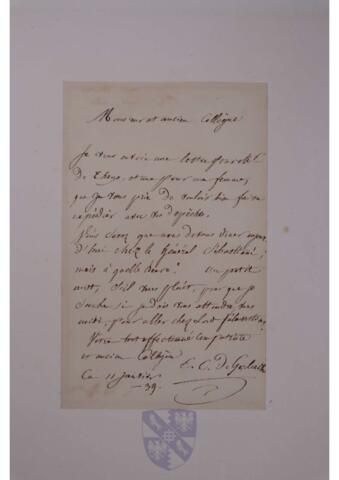 Monsieur et ancien Collègue
Je vous envoie une lettre pour M.
De et une pour ma femme,
que je vous prie de vouloir bien faire
expédier avec vos dépêches.
Vous savez que nous devons diner aujour
d'hui chez le Général Sébastiani;
mais à quelle heure? un petit
mot, s'il vous plait, pour que je
sache si je dois vous attendre
pour aller chez
Votre tout affectionné compatriote
et ancien Collègue
Ce 11 janvier
-39.